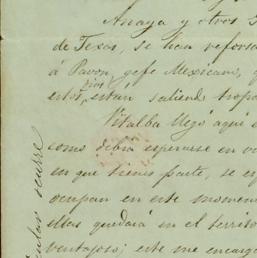 Anaya y otros
de Texas, se han reforsa
á Pavon, gefe Mexicano,
estos dias estan saliendo tropa
Vitalba llegó aquí
como debia esperarse en v
en que tienes parte, se es
ocupan en este momen
ellas quedará en el territ
ventajoso; este me encarg
ocurre